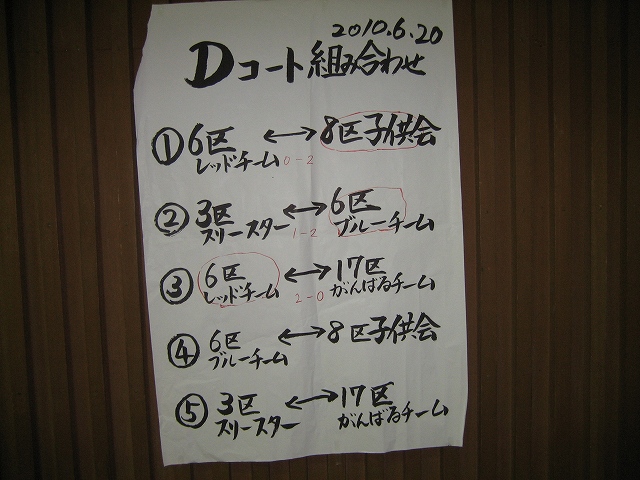 2010.6.20
Dコート組み合わせ
①6区 ↔ 8区子供会
レッドチーム 0-2
②3区 ↔ 6区
スリースター 1-2 ブルーチーム
③6区 ↔ 17区
レッドチーム 2-0 がんばるチーム
④6区 ↔ 8区子供会
ブルーチーム
⑤3区 ↔ 17区
スリースター がんばるチーム